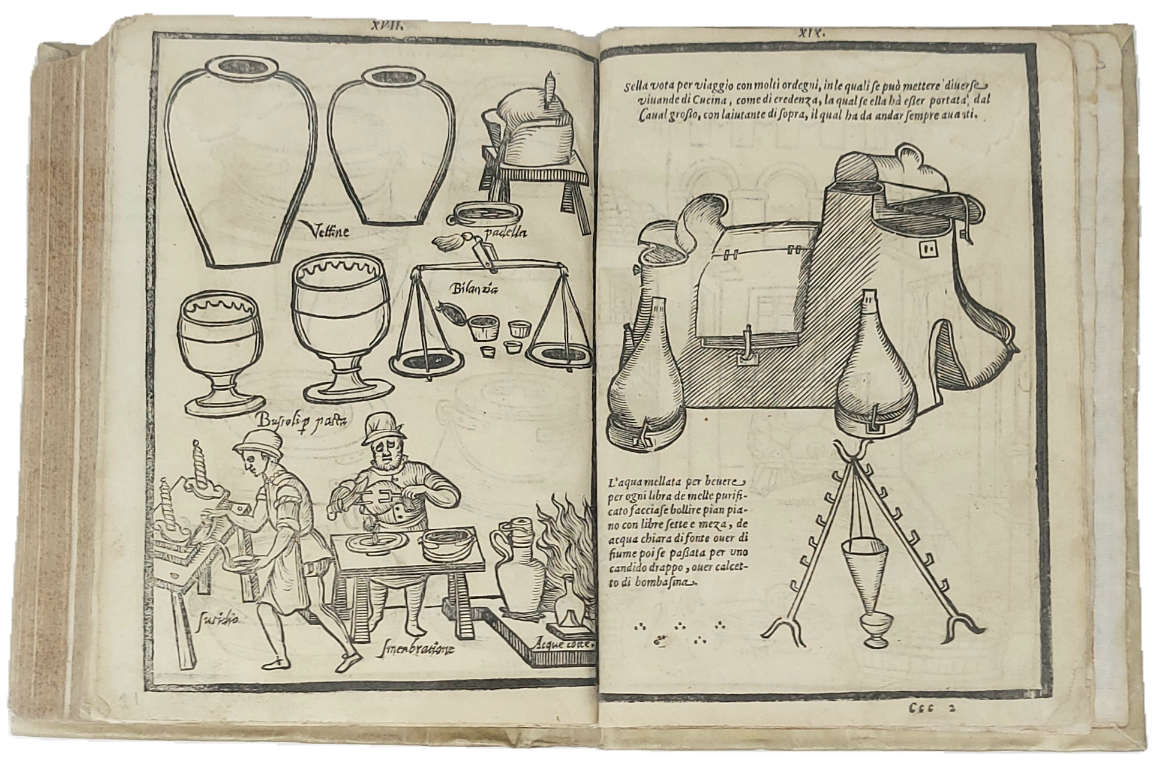 XVII.
Vettine
padella
Bilanzia
Bussoli p pasta
susidio
smenbratione
Acque cotte.
XIX.
Sella vota per viaggio con molti ordegni, in le quali se può mettere diuerse
viuande di Cucina, come di credenza, la qual se ella hà esser portata dal
Caual grosso, con laiutante di sopra, il qual ha da andar sempre auanti.
L'aqua mellata per beuere
per ogni libra de melle purifi-
cato facciase bollire pian pia-
no con libre sette e meza, de
acqua chiara di fonte ouer di
fiume poi se passata per uno
candido drappo, ouer calcet-
to di bombasina.
CCC 2